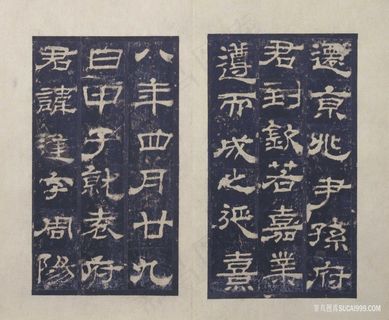 遷京兆尹孫府
君到欽若嘉業
遵而成之延熹
八年四月廿九
日甲子就袁府
君諱逢字周陽
SUCAI999.COM